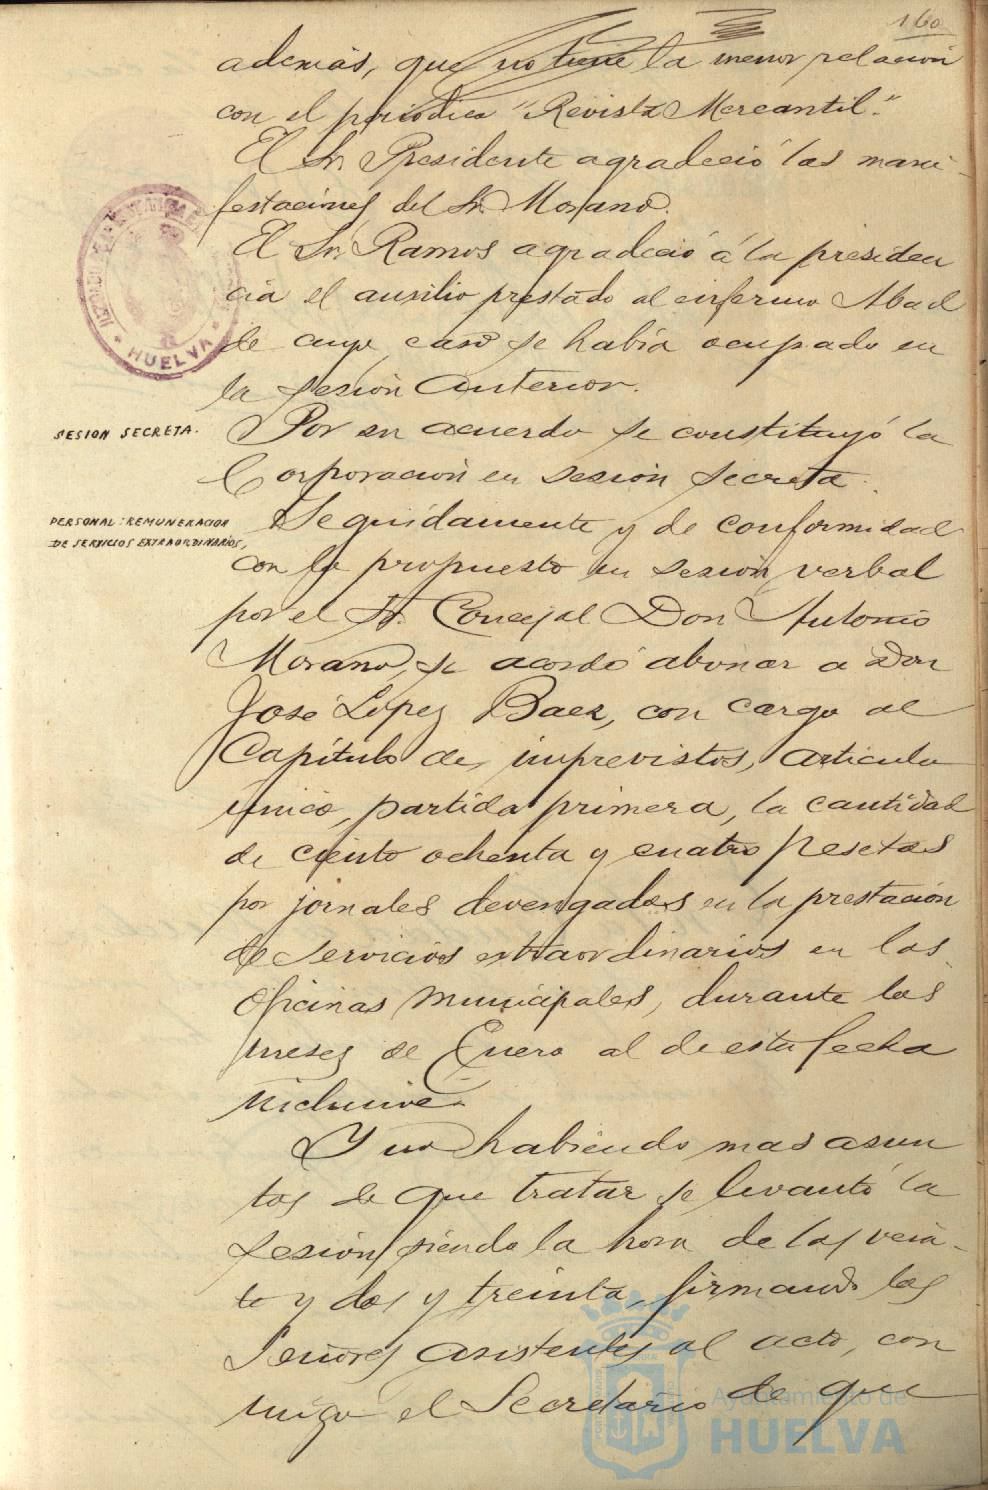 160
además, que no tiene la menor relación
con el periódico "Revista Mercantil."
El Sr. Presidente agradeció las mani-
festaciones del Sr. Morano.
El Sr. Ramos agradeció á la presiden
cia el ausilio prestado al enfermo Abad
de cuyo caso se había ocupado en
la sesión anterior.
SESION SECRETA.
Por su acuerdo se constituyó la
Corporación en sesión secreta.
PERSONAL: REMUNERACION
DE SERVICIOS EXTRAORDINARIOS.
Seguidamente y de conformidad
con lo propuesto en sesión verbal
por el Sr. Concejal Don Antonio
Morano, se acordó abonar a Don
José López Baez, con cargo al
Capítulo de imprevistos, artículo
único, partida primera, la cantidad
de ciento ochenta y cuatro pesetas
por jornales devengados en la prestación
de servicios extraordinarios en las
Oficinas Municipales, durante los
meses de Enero al de esta fecha
inclusive.
Y no habiendo mas asun
tos de que tratar se levantó la
sesión siendo la hora de las vein-
te y dos y treinta, firmando los
Señores asistentes al acto, con
migo el Secretario de que
HUELVA
Ayuntamiento de
HUELVA